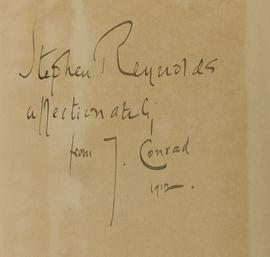 Stephen Reynolds
affectionately
from J. Conrad
1912.